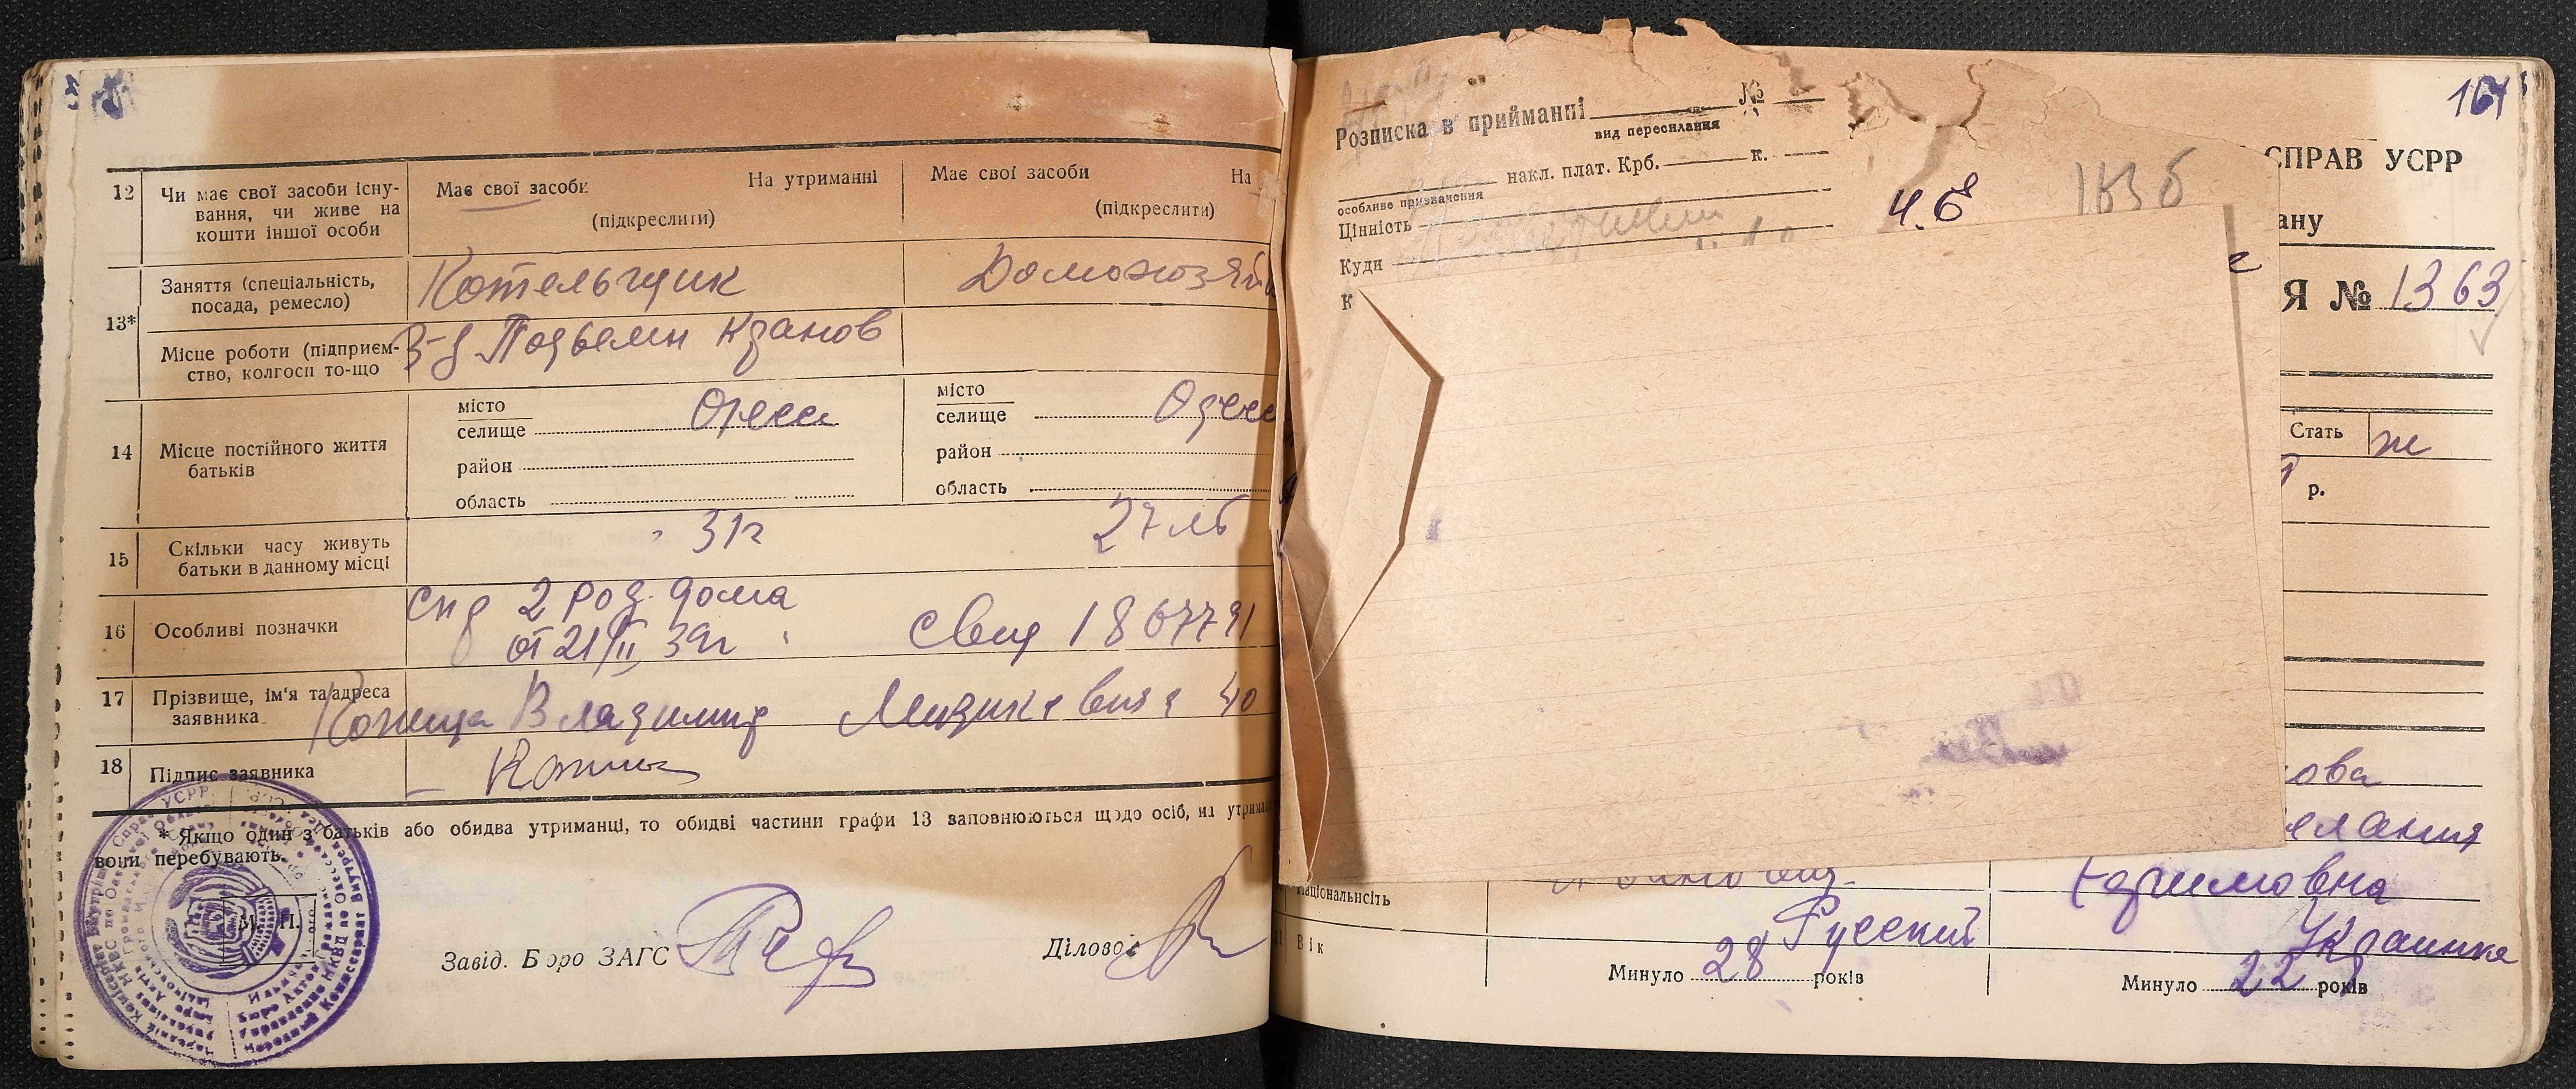 12
Чи має свої засоби існу-
вання, чи живе на
кошти іншої особи
Має свої засоби
На утриманні
(підкреслити)
Має свої засоби
На
(підкреслити)
13*
Заняття (спеціальність,
посада, ремесло)
Котельщик
Домохозяй
Місце роботи (підприєм-
ство, колгосп то-що
З-д Подъемн Кранов
14
Місце постійного життя
батьків
місто
селище
Одесса
район
область
місто
селище
Одесс
район
область
15
Скільки часу живуть
батьки в данному місці
31г
27 л
16
Особливі позначки
спр 2 род. дома
от 21/II 39г
Свид 1867791
17
Прізвище, ім'я та адреса
заявника
Владимир
40
18
Підпис заявника
* Якщо один з батьків або обидва утриманці, то обидві частини графи 13 заповнюються щодо осіб, на утрима
вони перебувають.
М. П.
Завід. Бюро ЗАГС
Діловод
Розписка в прийманні
№
вид пересилання
накл. плат. Крб.
к.
особливе призначення
Цінність
Куди
К
ч. б
1636
164
СПРАВ УСРР
ану
Я № 1363
Стать
ж
р.
ова
елания
Ефимовна
Національність
Русский
Украинка
11
Вік
Минуло 28 років
Минуло 22 років